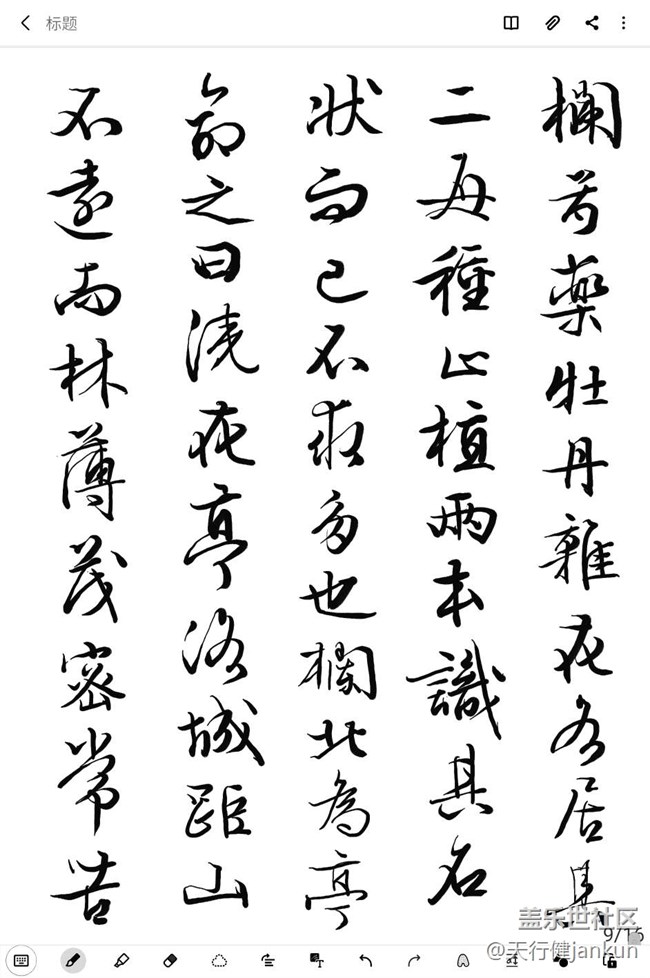 标题
欄芍藥牡丹雜花各居其
二每種止植兩本識其名
狀而已不求多也欄北為亭
命之曰澆花亭洛城距山
不遠而林薄茂密常苦
9/15
盖乐世社区
@天行健jankun